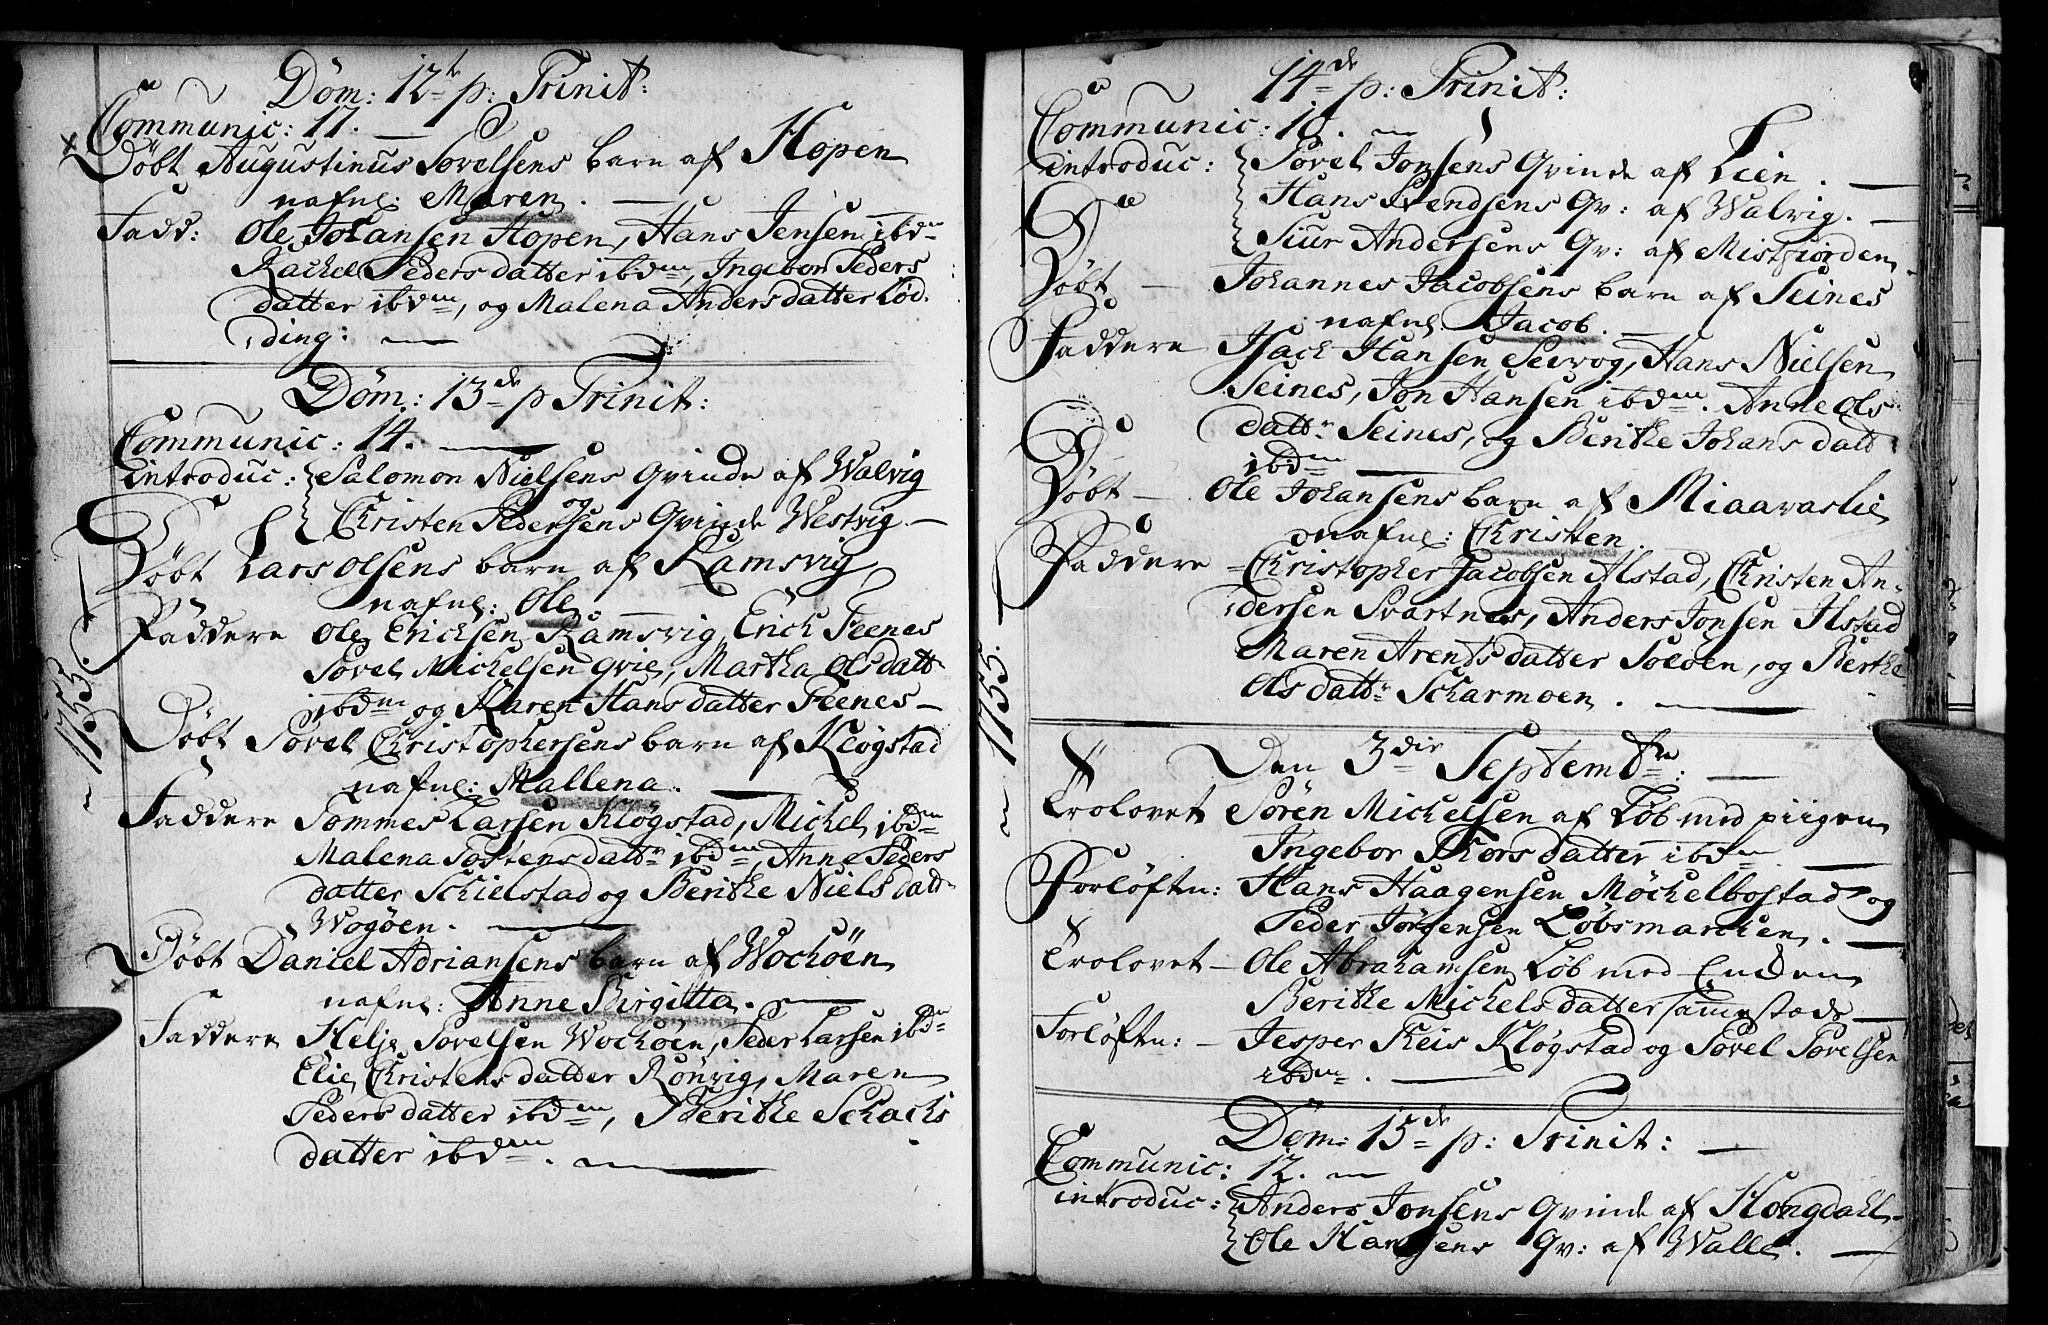 Dom: 12te p: Trinit:
Communic: 17.
Döbt Augustinus Sörelsens barn af Hopen
nafnl: Maren.
Fadd: Ole Johansen Hopen, Hans Jensen ibdm
Rachel Peders datter ibdm, Ingebor Peders
datter ibdm, og Malena Anders datter Lød
ding:
Dom: 13de p Trinit:
Communic: 14.
introduc: Salomon Nielsens Qvinde af Walvig
og
Christen Pedersens Qvinde Westvig.
Döbt Lars Olsens barn af Ramsvig
nafnl: Ole.
Faddere Ole Ericksen Ramsvig, Erich Feenes
Sörel Michelsen Qvie, Martha Olsdatt
ibdm og Karen Hans datter Feenes
Döbt Sörel Christophersens barn af Kløgstad
nafnl: Mallena.
Faddere Sommes Larsen Kløgstad, Michel ibdm
Malena Tostens dattr ibdm, Anne Peders
datter Schielstad og Berithe Niels datt
Wogøen.
Döbt Daniel Adriansens barn af Wochöen
nafnl: Anne Birgitta.
Faddere Helje Sörelsen Wochöen, Peder Larsen ibdm
Elie Christens datter Rönvig, Maren
Peders datter ibdm, Berithe Schachs
datter ibdm.
1755.
14de p: Trinit:
Communic: 10.
introduc: Sörel Jonsens Qvinde af Lien.
Hans Svendsens Qv: af Walvig.
Siur Andersens Qv: af Mistfiorden
Döbt Johannes Jacobsens barn af Seines
nafnl. Jacob.
Faddere Isach Hansen Seivog, Hans Nielsen
Seines, Jon Hansen ibdm. Anne Ols
dattr Seines, og Berithe Johans datt
ibdm
Döbt Ole Johansens barn af Miaavaslie
nafnl: Christen.
Faddere Christopher Jacobsen Alstad, Christen An-
dersen Svartnes, Anders Jonsen Ilstad
Maren Arents datter Soløen, og Berthe
Ols dattr Scharmoen.
1755.
Den 3die Septembr:
Trolovet Sören Michelsen af Løb med piigen
Ingebor Thors datter ibdm
Forløftn: Hans Haagensen Möchelbostad og
Peder Jørgensen Løbsmarchen.
Trolovet Ole Abrahamsen Løb med Enchen
Berithe Michels datter sammestads
Forløftn: Jesper Theis Kløgstad og Sörel Sörelsen
ibdm.
Dom: 15de p: Trinit:
Communic: 12.
introduc: Anders Jonsens Qvinde af Hongdahl
Ole Hansens Qv: af Walle.